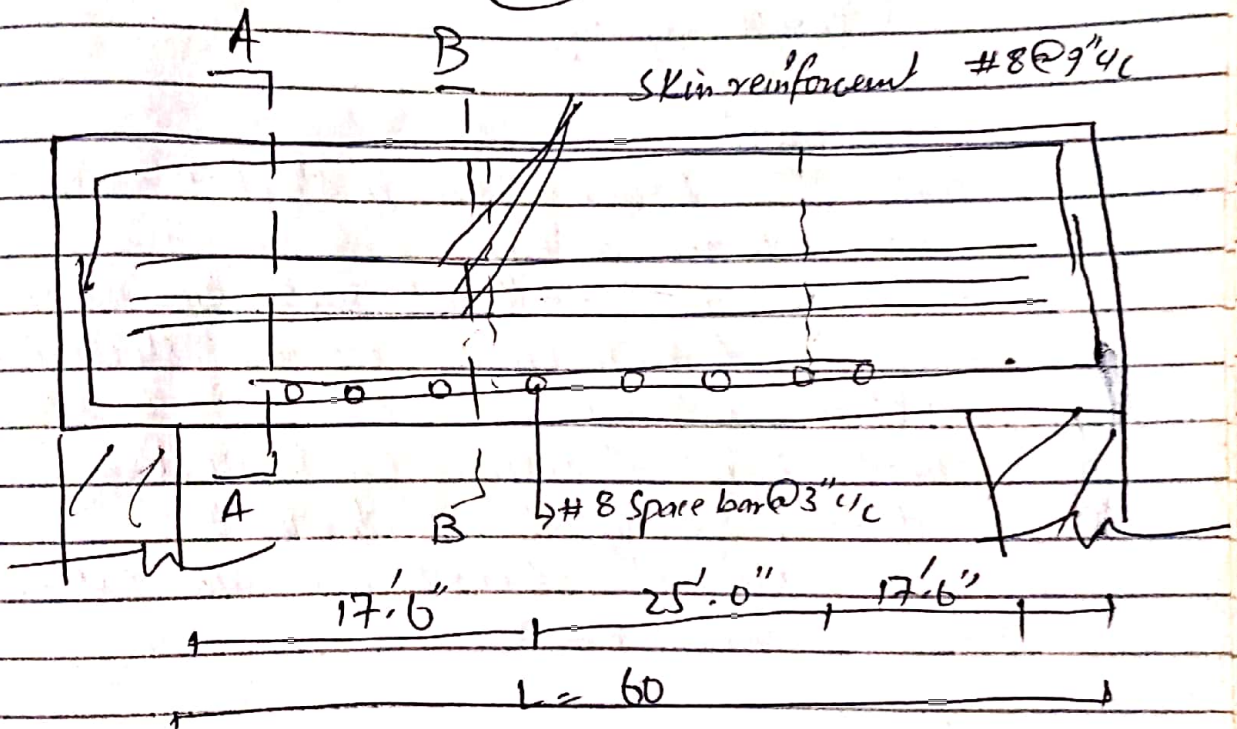 A
B
Skin reinforcement #8@9"c/c
A
B
#8 Space bar@3"c/c
17'.6" 25'.0" 17'.6"
L = 60